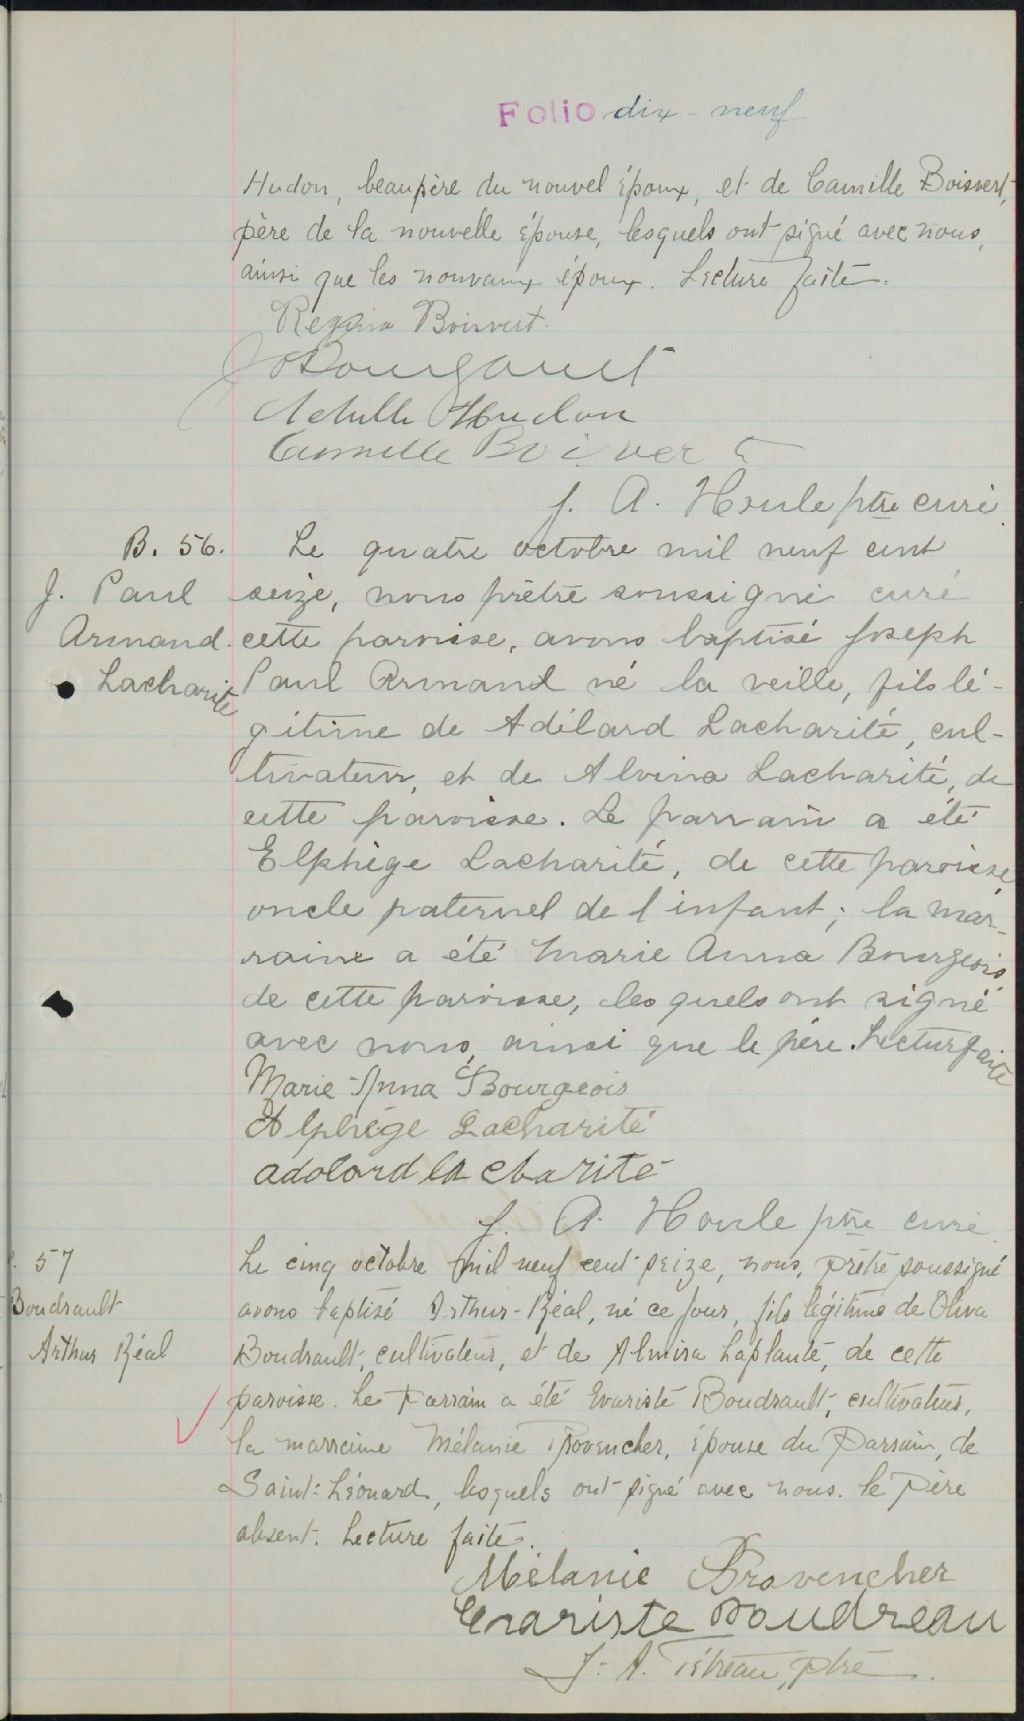 Folio dix-neuf
Hudon, beaupère du nouvel époux, et de Camille Boisvert,
père de la nouvelle épouse, lesquels ont signé avec nous,
ainsi que les nouveaux époux. Lecture faite.
Regina Boisvert.
Bourgault
Achille Hudon
Camille Boisvert
J. A. Houle ptre curé
B. 56.
J. Paul
Armand
Lacharité
Le quatre octobre mil neuf cent
seize, nous prêtre soussigné curé
cette paroisse, avons baptisé Joseph
Paul Armand né la veille, fils lé-
gitime de Adélard Lacharité, cul-
tivateur, et de Alvina Lacharité, de
cette paroisse. Le parrain a été
Elphège Lacharité, de cette paroisse,
oncle paternel de l'infant; la mar-
raine a été Marie Anna Bourgeois,
de cette paroisse, lesquels ont signé
avec nous, ainsi que le père. Lectur faite
Marie-Anna Bourgeois
Alphége Lacharité
adolord la charité
J. A. Houle ptre curé
57
Boudrault
Arthur Réal
Le cinq octobre mil neuf cent seize, nous, prêtre soussigné
avons baptisé Arthur-Réal, né ce jour, fils légitime de Oliva
Boudrault, cultivateur, et de Almira Laplante, de cette
paroisse. Le Parrain a été Evariste Boudrault, cultivateur,
la marraine Mélanie Provencher, épouse du Parrain, de
Saint-Léonard, lesquels ont signé avec nous. le Père
absent. Lecture faite.
Mélanie Provencher
Evariste Boudreau
J. A. ptre